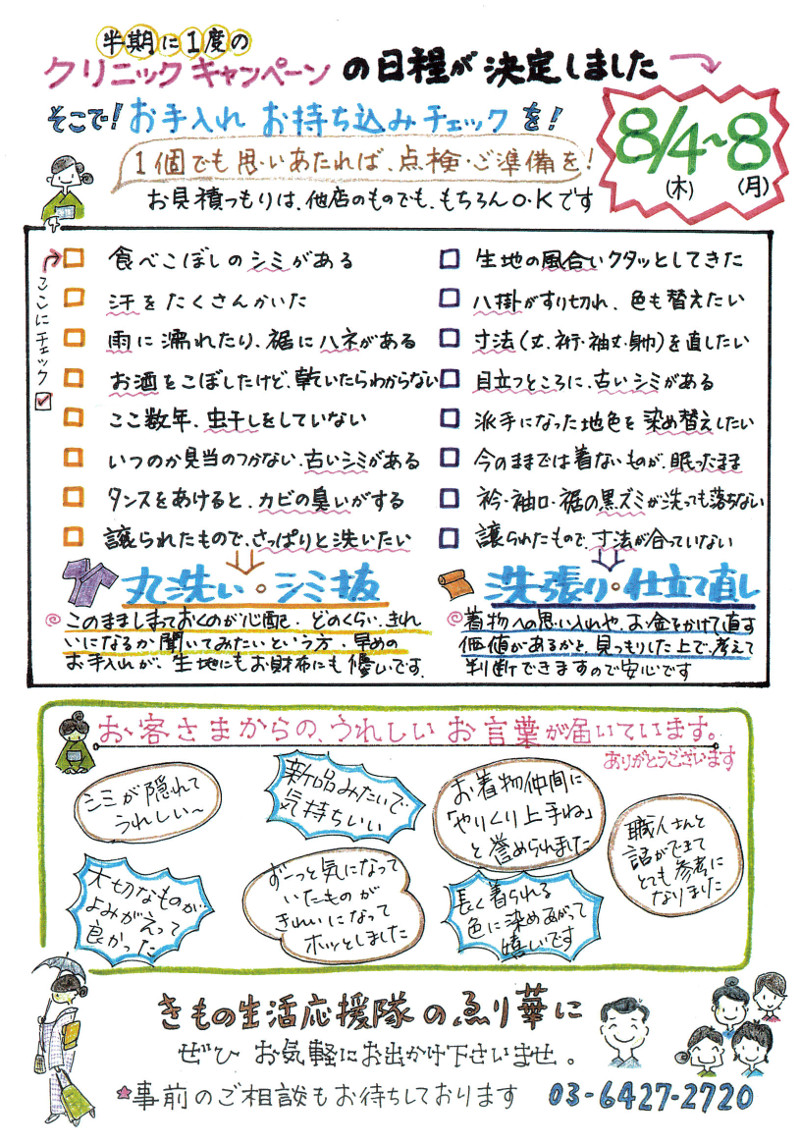 半期に1度の
クリニックキャンペーンの日程が決定しました
そこで!お手入れ お持ち込みチェックを!
8/4〜8
(木) (月)
1個でも思いあたれば、点検・ご準備を!
お見積つもりは、他店のものでも、もちろんO.Kです
ここにチェック
食べこぼしのシミがある
汗をたくさんかいた
雨に濡れたり、裾にハネがある
お酒をこぼしたけど、乾いたらわからない
ここ数年、虫干しをしていない
いつのか見当のつかない、古いシミがある
タンスをあけると、カビの臭いがする
譲られたもので、さっぱりと洗いたい
丸洗い・シミ抜
このまましまっておくのが心配、どのくらい、きれ
いになるか聞いてみたいという方、早めの
お手入れが、生地にもお財布にも優しいです.
生地の風合いクタッとしてきた
八掛がすり切れ、色も替えたい
寸法(丈、裄・袖丈・身巾)を直したい
目立つところに、古いシミがある
派手になった地色を染め替えしたい
今のままでは着ないものが、眠ったまま
衿・袖口・裾の黒ズミが洗っても落ちない
譲られたもので、寸法が合っていない
洗い張り・仕立て直し
着物への思い入れや、お金をかけて直す
価値があるかと、見つもりした上で、考えて
判断できますので安心です
お客さまからの、うれしいお言葉が届いています。
ありがとうございます
シミが隠れて
うれしい〜
新品みたいで
気持ちいい
お着物仲間に
「やりくり上手ね」
と誉められました
職人さんと
話ができて
とても参考に
なりました
大切なものが
よみがえって
良かった
ずーっと気になって
いたものが
きれいになって
ホッとしました
長く着られる
色に染めあがって
嬉しいです
きもの生活応援隊のゑり華に
ぜひ お気軽にお出かけ下さいませ。
★事前のご相談もお待ちしております 03-6427-2720